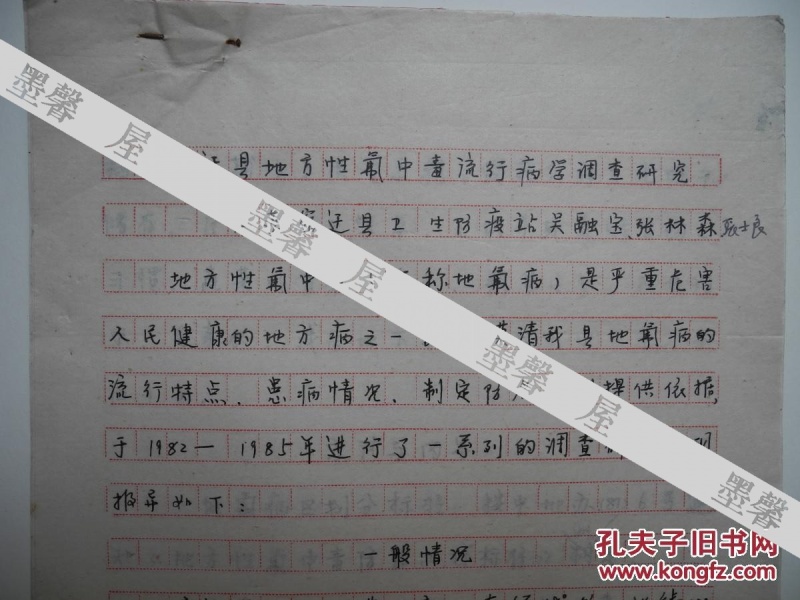 迁县地方性氟中毒流行病学调查研究
宿迁县卫生防疫站吴融宝、张林森 张士良
地方性氟中 称地氟病)是严重危害
人民健康的地方病之一 清我县地氟病的
流行特点、患病情况、制定防 提供依据,
于1982—1985年进行了一系列的调查
报导如下:
一般情况
墨馨屋
墨馨屋
墨馨屋
墨馨屋
孔夫子旧书网
www.kongfz.com